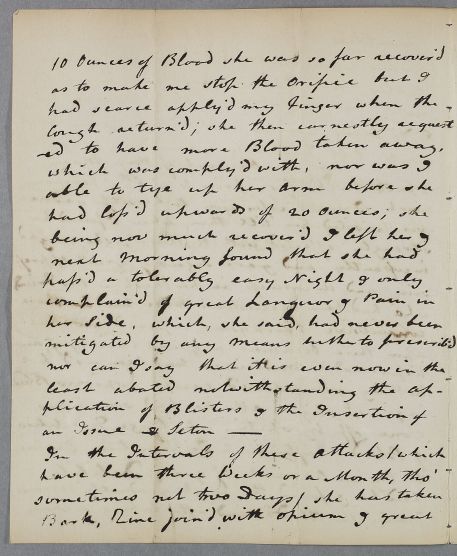 10 Ounces of Blood she was so far recover'd
as to make me stop the Orifice but I
had scarce apply'd my Finger when the
Cough return'd; she then earnestly request
-ed to have more Blood taken away,
which was comply'd with, nor was I
able to tye up her Arm before she
had loss'd upwards of 20 Ounces; she
being now much recover'd I left her &
next Morning found that she had
pass'd a tolerably easy Night & only
complain'd of great Languor & Pain in
her Side, which, she said, had never been
mitigated by any means hitherto prescrib'd
nor can I say that it is even now in the
least abated notwithstanding the Ap-
plication of Blisters & the Insertion of
an Issue & Seton —
In the Intervals of these attacks/which
have been three Weeks or a Month, tho'
sometimes not two Days/ she has taken
Bark, Zinc join'd with opium & great